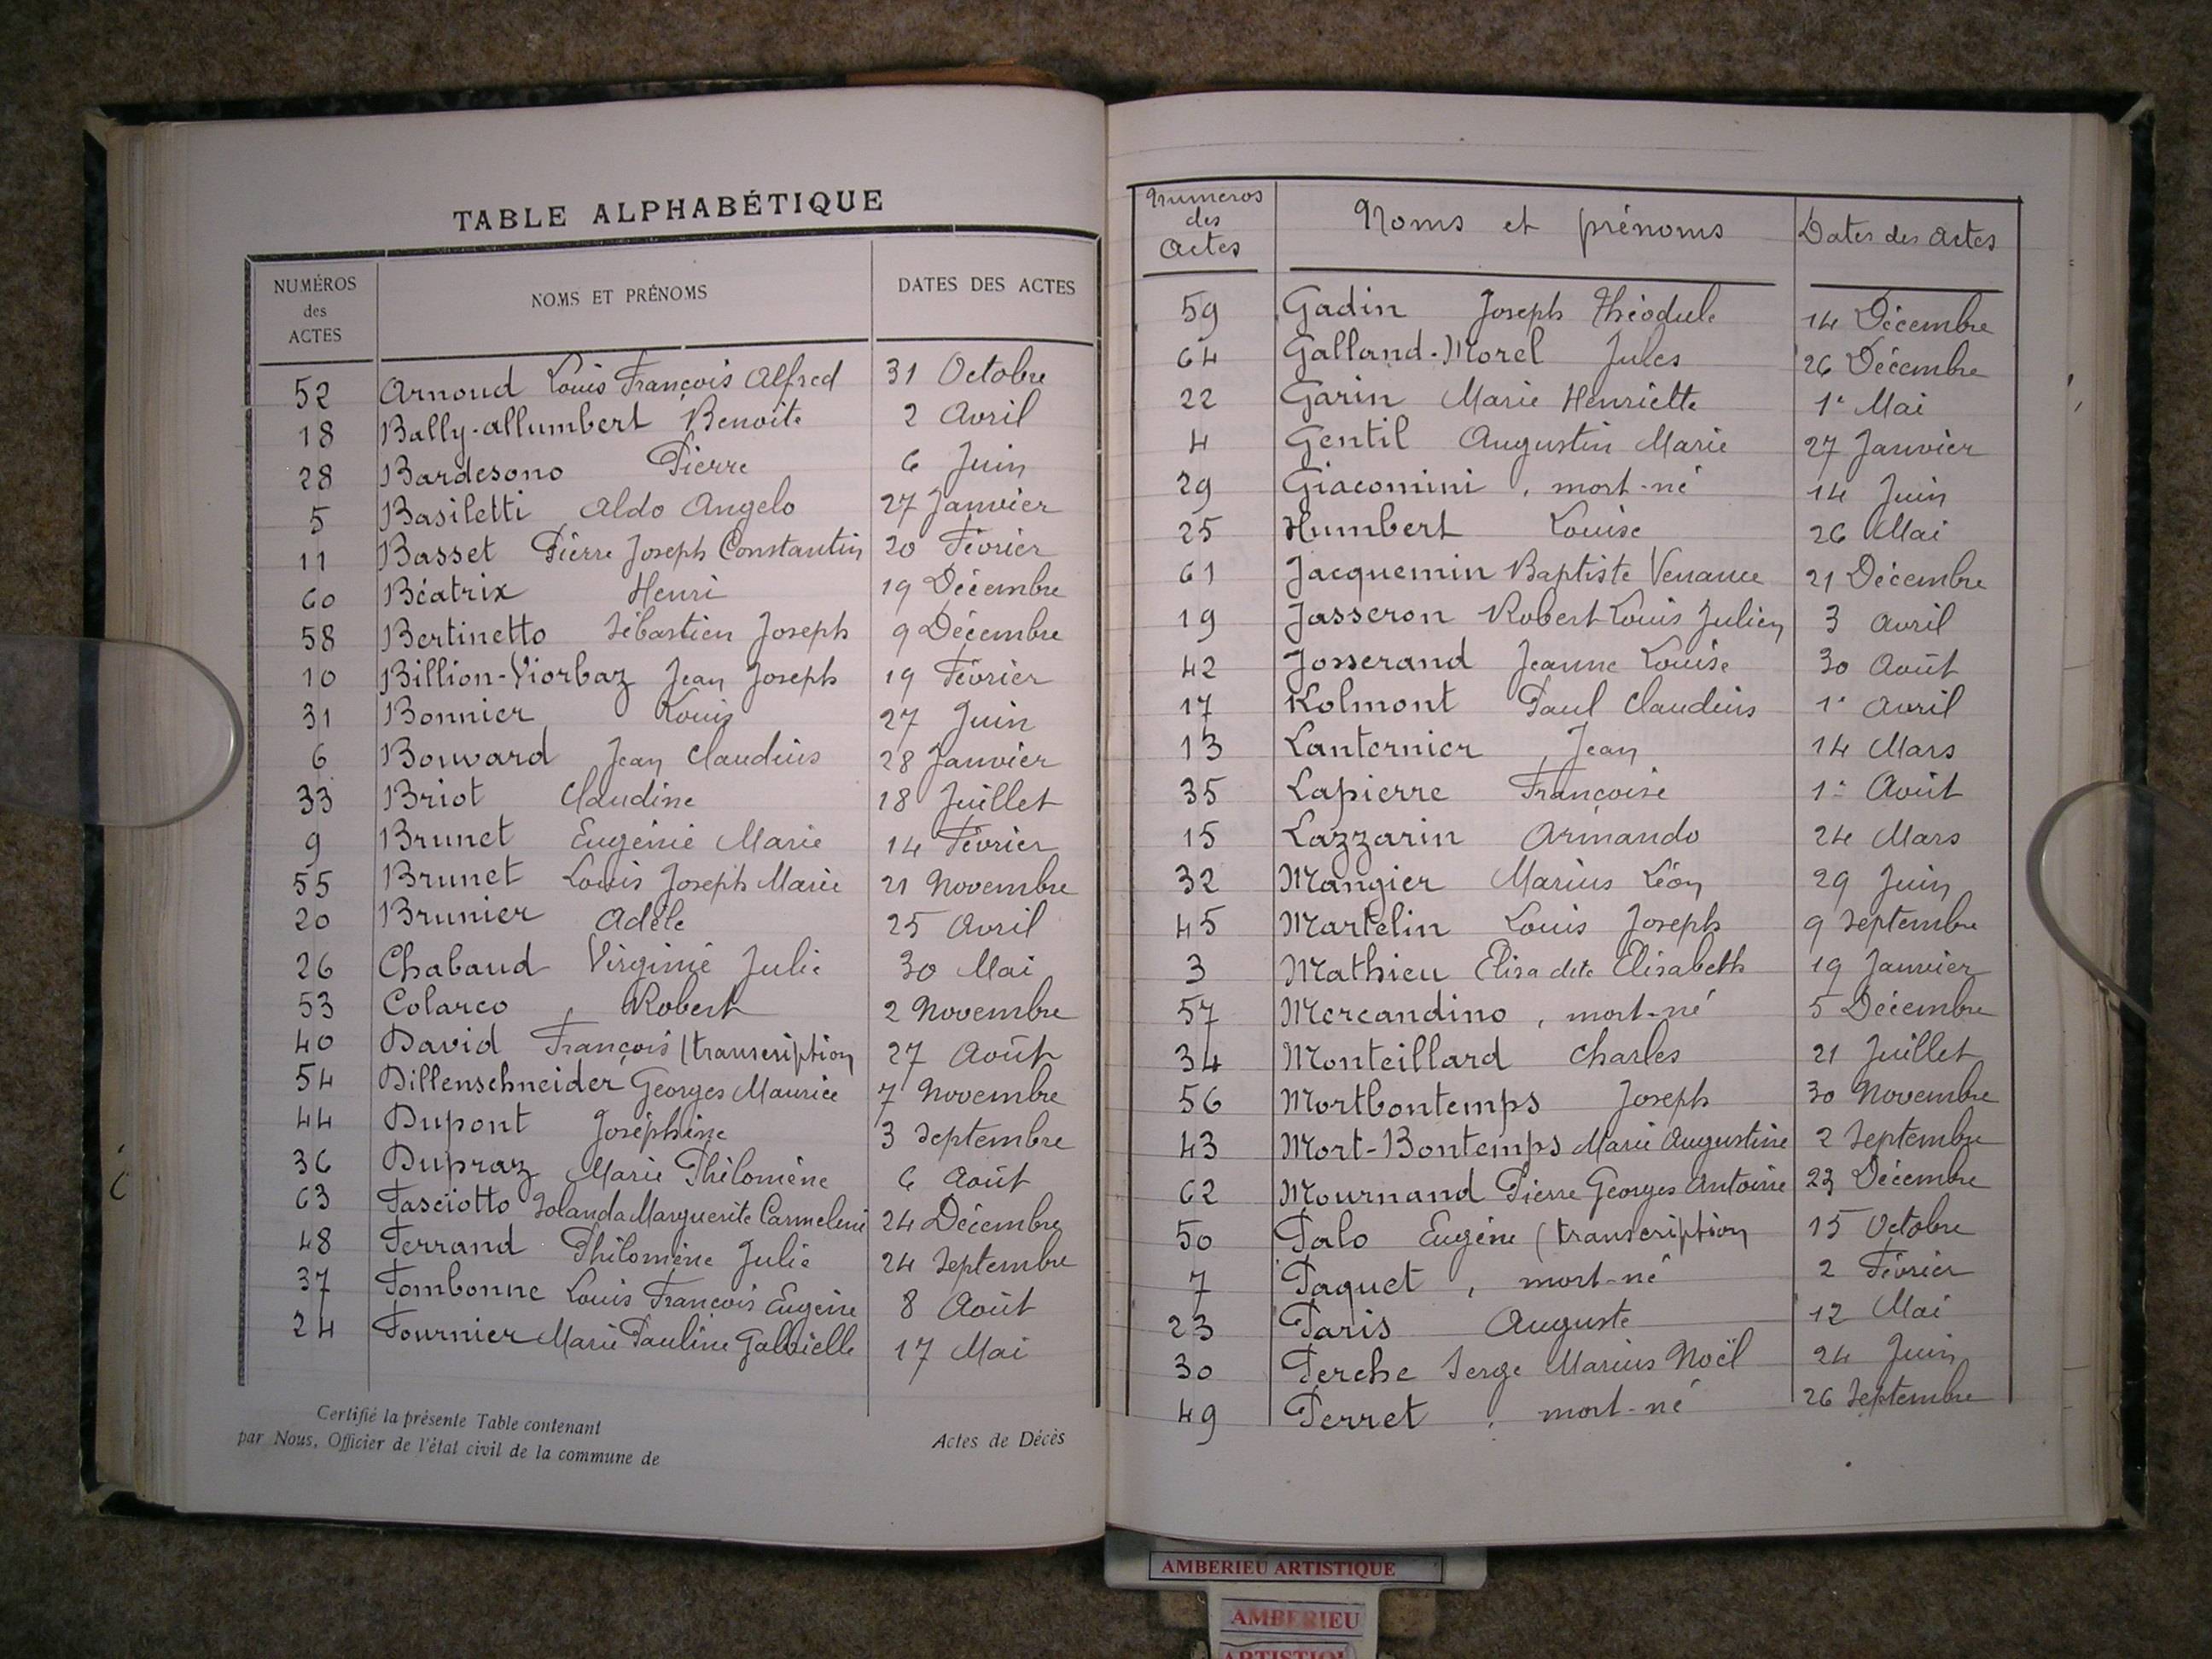 TABLE ALPHABÉTIQUE
NUMÉROS des ACTES NOMS ET PRÉNOMS DATES DES ACTES
52 Arnoud Louis François Alfred 31 Octobre
18 Bally-Allumbert Benoîte 2 Avril
28 Bardesono Pierre 6 Juin
5 Basiletti Aldo Angelo 27 Janvier
11 Basset Pierre Joseph Constantin 20 Février
60 Béatrix Henri 19 Décembre
58 Bertinetto Sébastien Joseph 9 Décembre
10 Billion-Viorbaz Jean Joseph 19 Février
31 Bonnier Louis 27 Juin
6 Bouvard Jean Claudius 28 Janvier
33 Briot Claudine 18 Juillet
9 Brunet Eugénie Marie 14 Février
55 Brunet Louis Joseph Marie 21 Novembre
20 Brunier Adèle 25 Avril
26 Chabaud Virginie Julie 30 Mai
53 Colarco , Robert 2 Novembre
40 David François (transcription 27 Août
54 Dillenschneider Georges Maurice 7 Novembre
44 Dupont Joséphine 3 Septembre
36 Dupraz Marie Philomène 6 Août
63 Fasciotto Iolanda Marguerite 24 Décembre
48 Ferrand Philomène Julie 24 Septembre
37 Fombonne Louis François Eugène 8 Août
24 Fournier Marie Pauline Gabrielle 17 Mai
Certifié la présente Table contenant Actes de Décès
par Nous, Officier de l'état civil de la commune de
Numéros des Actes Noms et prénoms Dates des Actes
59 Gadin Joseph Théodule 14 Décembre
64 Galland-Morel Jules 26 Décembre
22 Garin Marie Henriette 1er Mai
4 Gentil Augustin Marie 27 Janvier
29 Giacomini , mort-né 14 Juin
25 Humbert Louise 26 Mai
61 Jacquemin Baptiste Venance 21 Décembre
19 Jasseron Robert Louis Julien 3 Avril
42 Josserand Jeanne Louise 30 Août
17 Kolmont Paul Claudius 1er Avril
13 Lanternier , Jean 14 Mars
35 Lapierre Françoise 1er Août
15 Lazzarin Armando 24 Mars
32 Mangier Marius Léon 29 Juin
45 Martelin Louis Joseph 9 Septembre
3 Mathieu Elisa dite Elisabeth 19 Janvier
57 Mercandino , mort-né 5 Décembre
34 Monteillard Charles 21 Juillet
56 Mortbontemps Joseph 30 Novembre
43 Mort-Bontemps Marie Augustine 2 Septembre
62 Mournand Pierre Georges Antoine Décembre
50 Palo Eugène (transcription 15 Octobre
7 Paquet , mort-né 2 Février
23 Paris Auguste 12 Mai
30 Perche Serge Marius Noël 24 Juin
49 Perret , mort-né 26 Septembre
AMBERIEU ARTISTIQUE
AMBERIEU
ARTISTIQUE